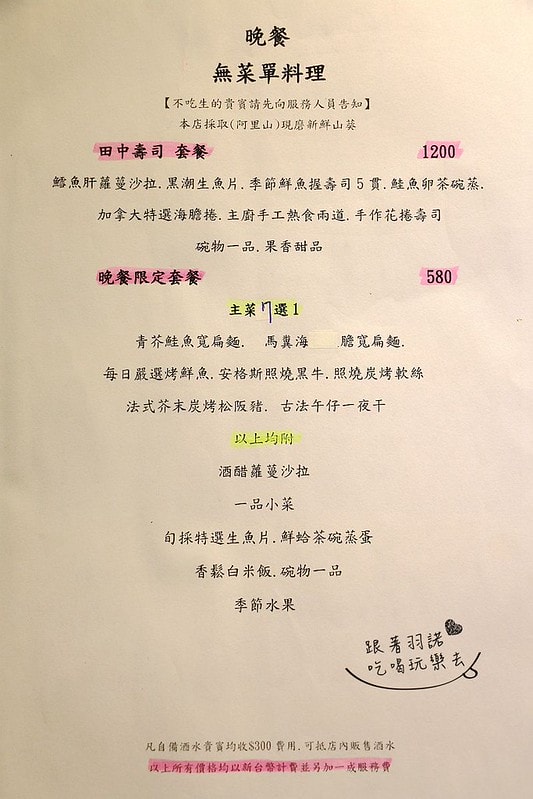 晚餐
無菜單料理
【不吃生的貴賓請先向服務人員告知】
本店採取(阿里山)現磨新鮮山葵
田中壽司 套餐 1200
鱈魚肝蘿蔓沙拉.黑潮生魚片.季節鮮魚握壽司5貫.鮭魚卵茶碗蒸.
加拿大特選海膽捲.主廚手工熱食兩道.手作花捲壽司
碗物一品.果香甜品
晚餐限定套餐 580
主菜7選1
青芥鮭魚寬扁麵. 馬糞海 膽寬扁麵.
每日嚴選烤鮮魚.安格斯照燒黑牛.照燒炭烤軟絲
法式芥末炭烤松阪豬. 古法午仔一夜干
以上均附
酒醋蘿蔓沙拉
一品小菜
旬採特選生魚片.鮮蛤茶碗蒸蛋
香鬆白米飯.碗物一品
季節水果
跟著羽諾
吃喝玩樂去
凡自備酒水貴賓均收$300費用.可抵店內販售酒水
以上所有價格均以新台幣計費並另加一成服務費